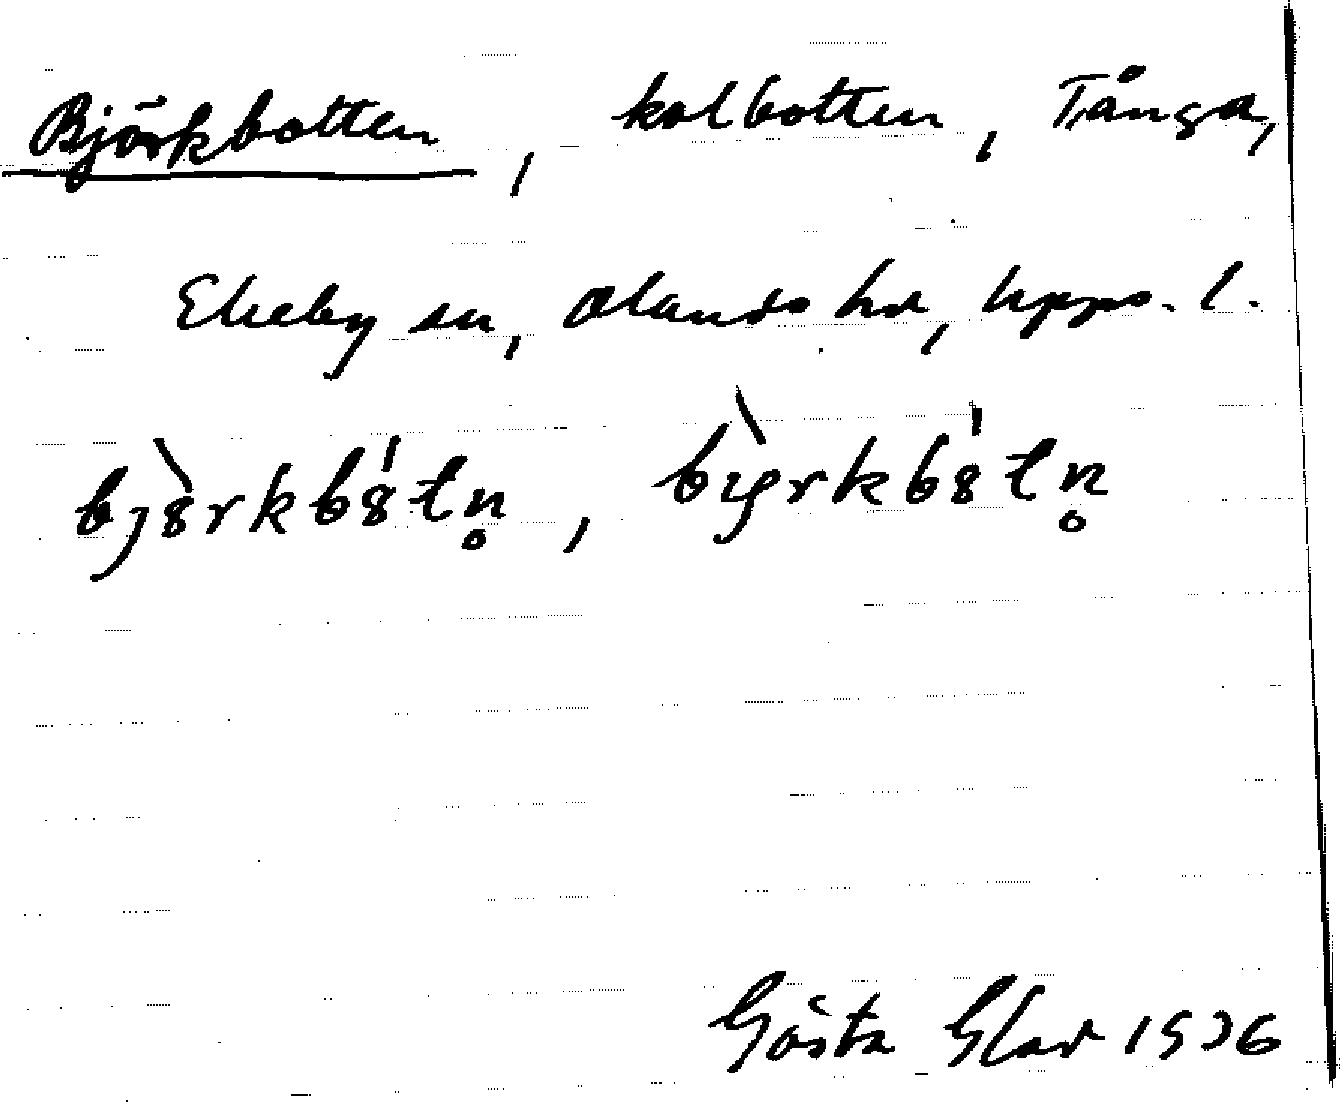 Björkbotten, kolbotten, Tånga,
Ekeby sn, Olands hd, Upps. l.
bjȍrkbȣtn̥, 
Gösta Glad 1936